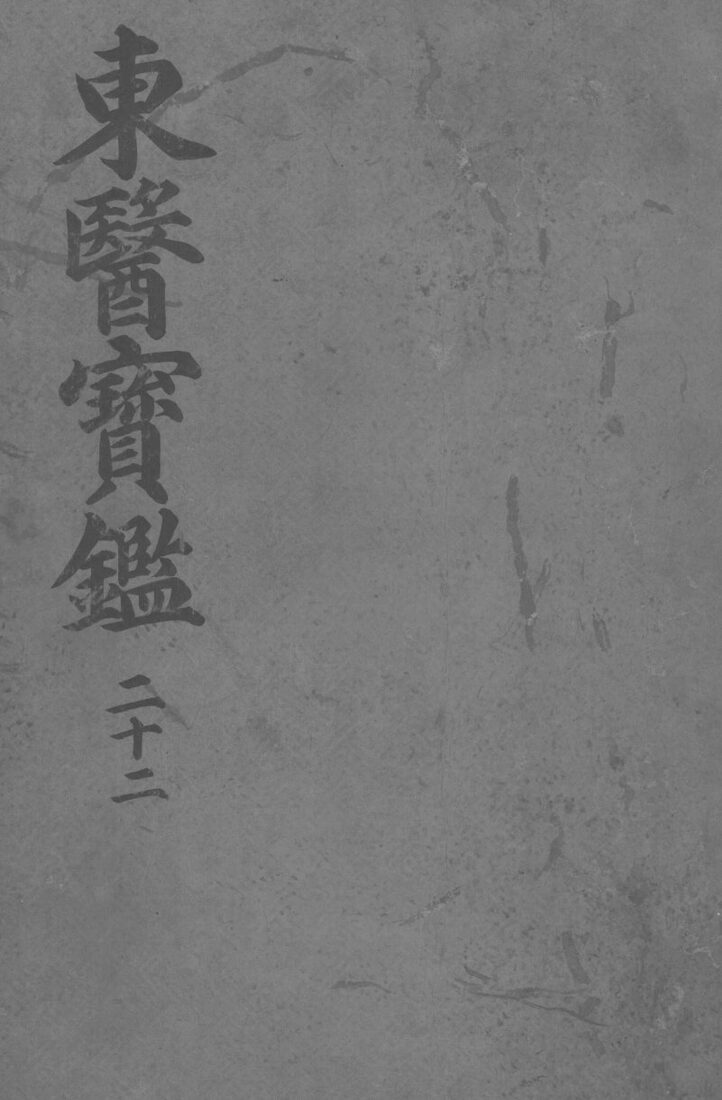 東醫寶鑑
二十二